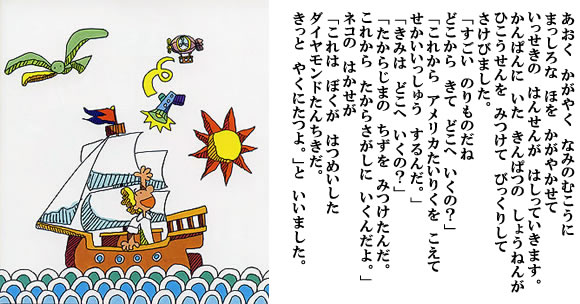 あおく かがやく なみのむこうに
まっしろな ほを かがやかせて
いっせきの はんせんが はしっていきます。
かんぱんに いた きんぱつの しょうねんが
ひこうせんを みつけて びっくりして
さけびました。
「すごい のりものだね
どこから きて どこへ いくの？」
「これから アメリカたいりくを こえて
せかいいっしゅう するんだ。」
「きみは どこへ いくの？」
「たからじまの ちずを みつけたんだ。
これから たからさがしに いくんだよ。」
ネコの はかせが
「これは ぼくが はつめいした
ダイヤモンドたんちきだ。
きっと やくにたつよ。」と いいました。